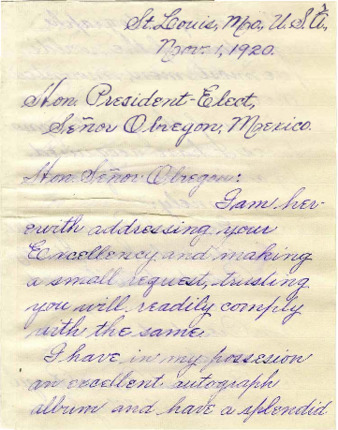 St. Louis, Mo, U.S.A,
Nov. 1, 1920.
Hon. President-Elect,
Señor Obregon, Mexico.
Hon. Señor Obregon:
I am her-
ewith addressing your
Excellency and making
a small request, trusting
you will readily comply
with the same.
I have in my possesion
an excellent autograph
album and have a splendid